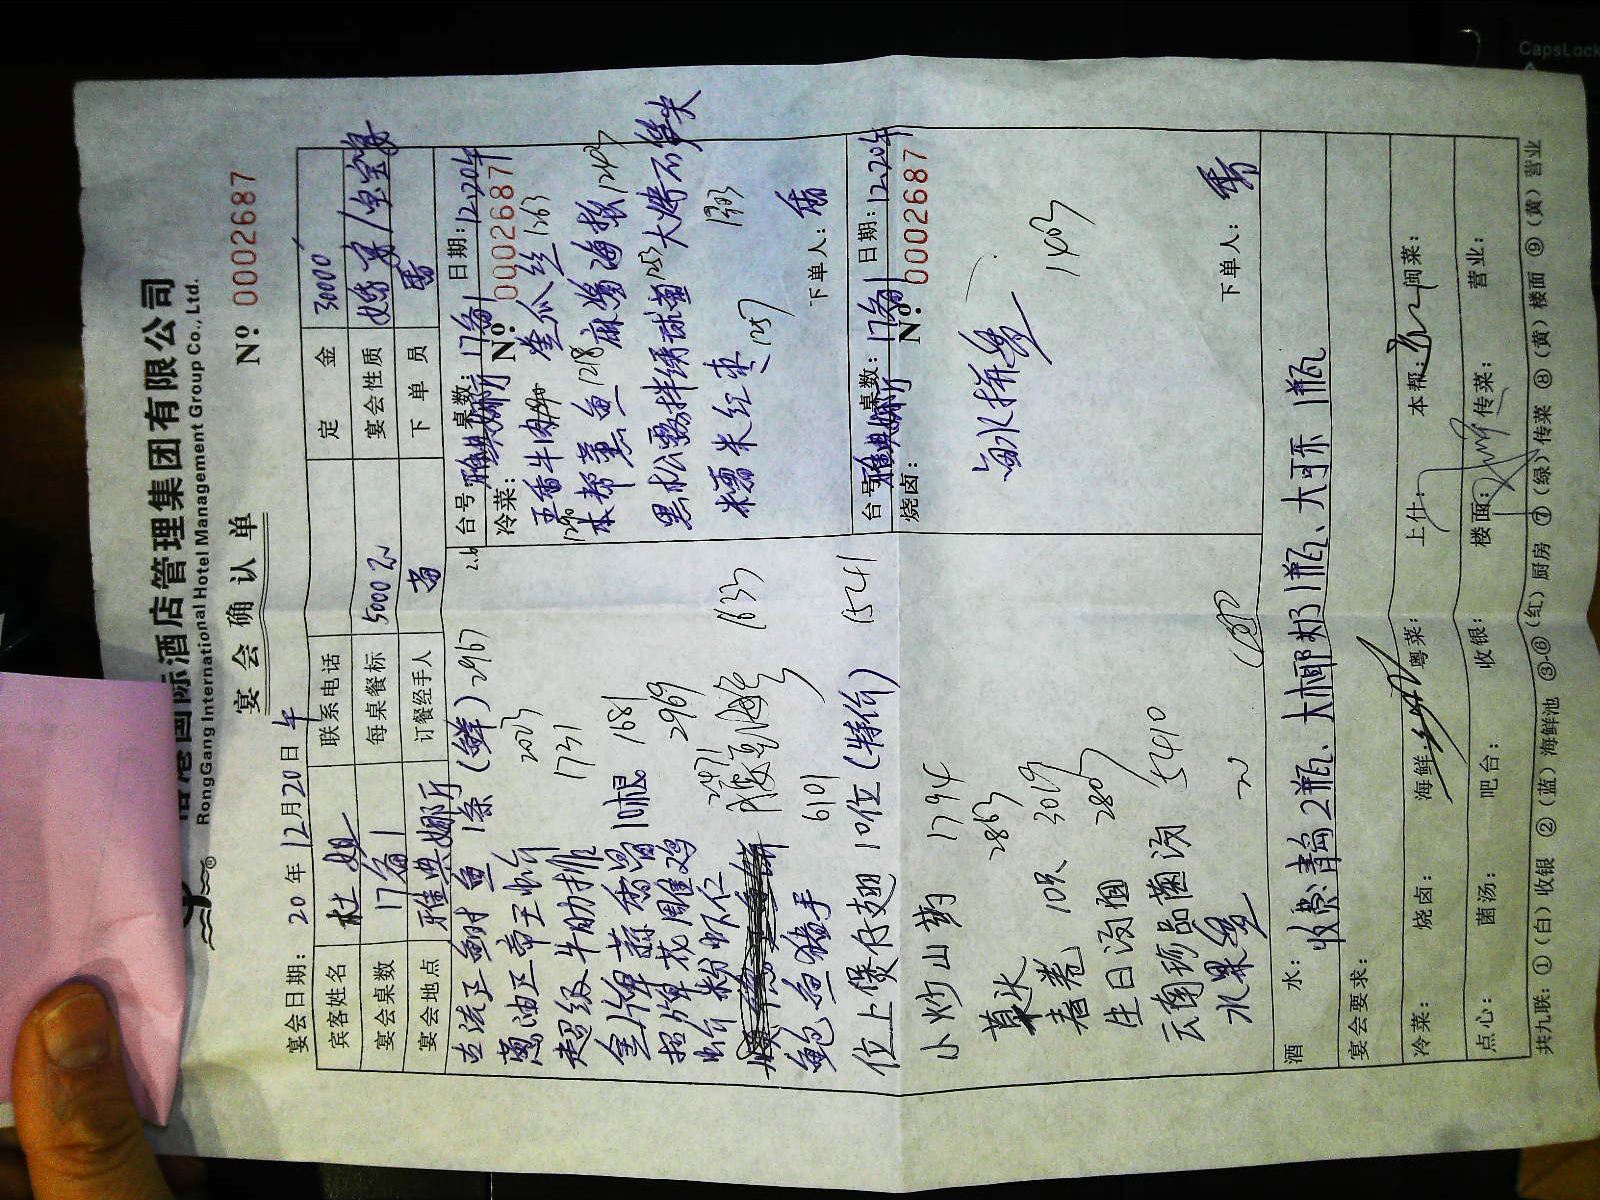 CapsLock
国际酒店管理集团有限公司
RongGang International Hotel Management Group Co., Ltd.
®
宴会确认单
Nº 0002687
宴会日期: 20 年 12月20日 午
宾客姓名 杜姐 联系电话 定金 30000
宴会桌数 17备1 每桌餐标 5000元 宴会性质 婚宴/宝宝宴
宴会地点 雅典娜厅 订餐经手人 下单员 香
古法蒸鲥鱼 1条 (鲜) 2967
葱油正帝王蛤 2023
超级牛肋排 1731
金牌蒜香骨 10根 1681
招牌花雕鸡 2969
虾仁 2471
1633
鲍鱼猪手 6101
位上煲仔翅 10位 (特价) 15241
小炒山药 1794
2863
春卷 10只 3019
生日汤圆 2803
云南珍品菌汤 5410
水果盘
台号: 雅典娜厅 桌数: 17备1 日期: 12.20午
冷菜: Nº 0002687
五香牛肉 莴瓜丝 1263
本帮熏鱼 1218 麻酱海蜇 1243
黑松露拌绣球菌 1253 大烤石笋尖
糯米红枣 1257 1303
下单人: 香
台号: 雅典娜厅 桌数: 17备1 日期: 12.20午
烧卤: Nº 0002687
卤水拼盘 1403
下单人: 香
酒水: 收费青岛2瓶、大椰邦1瓶、大可乐1瓶
宴会要求:
冷菜: 烧卤: 海鲜: 粤菜: 上什: 本帮: 闽菜:
点心: 菌汤: 吧台: 收银: 楼面: 传菜: 营业:
共九联: ①(白)收银 ②(蓝)海鲜池 ③-⑥(红)厨房 ⑦(绿)传菜 ⑧(黄)楼面 ⑨(黄)营业